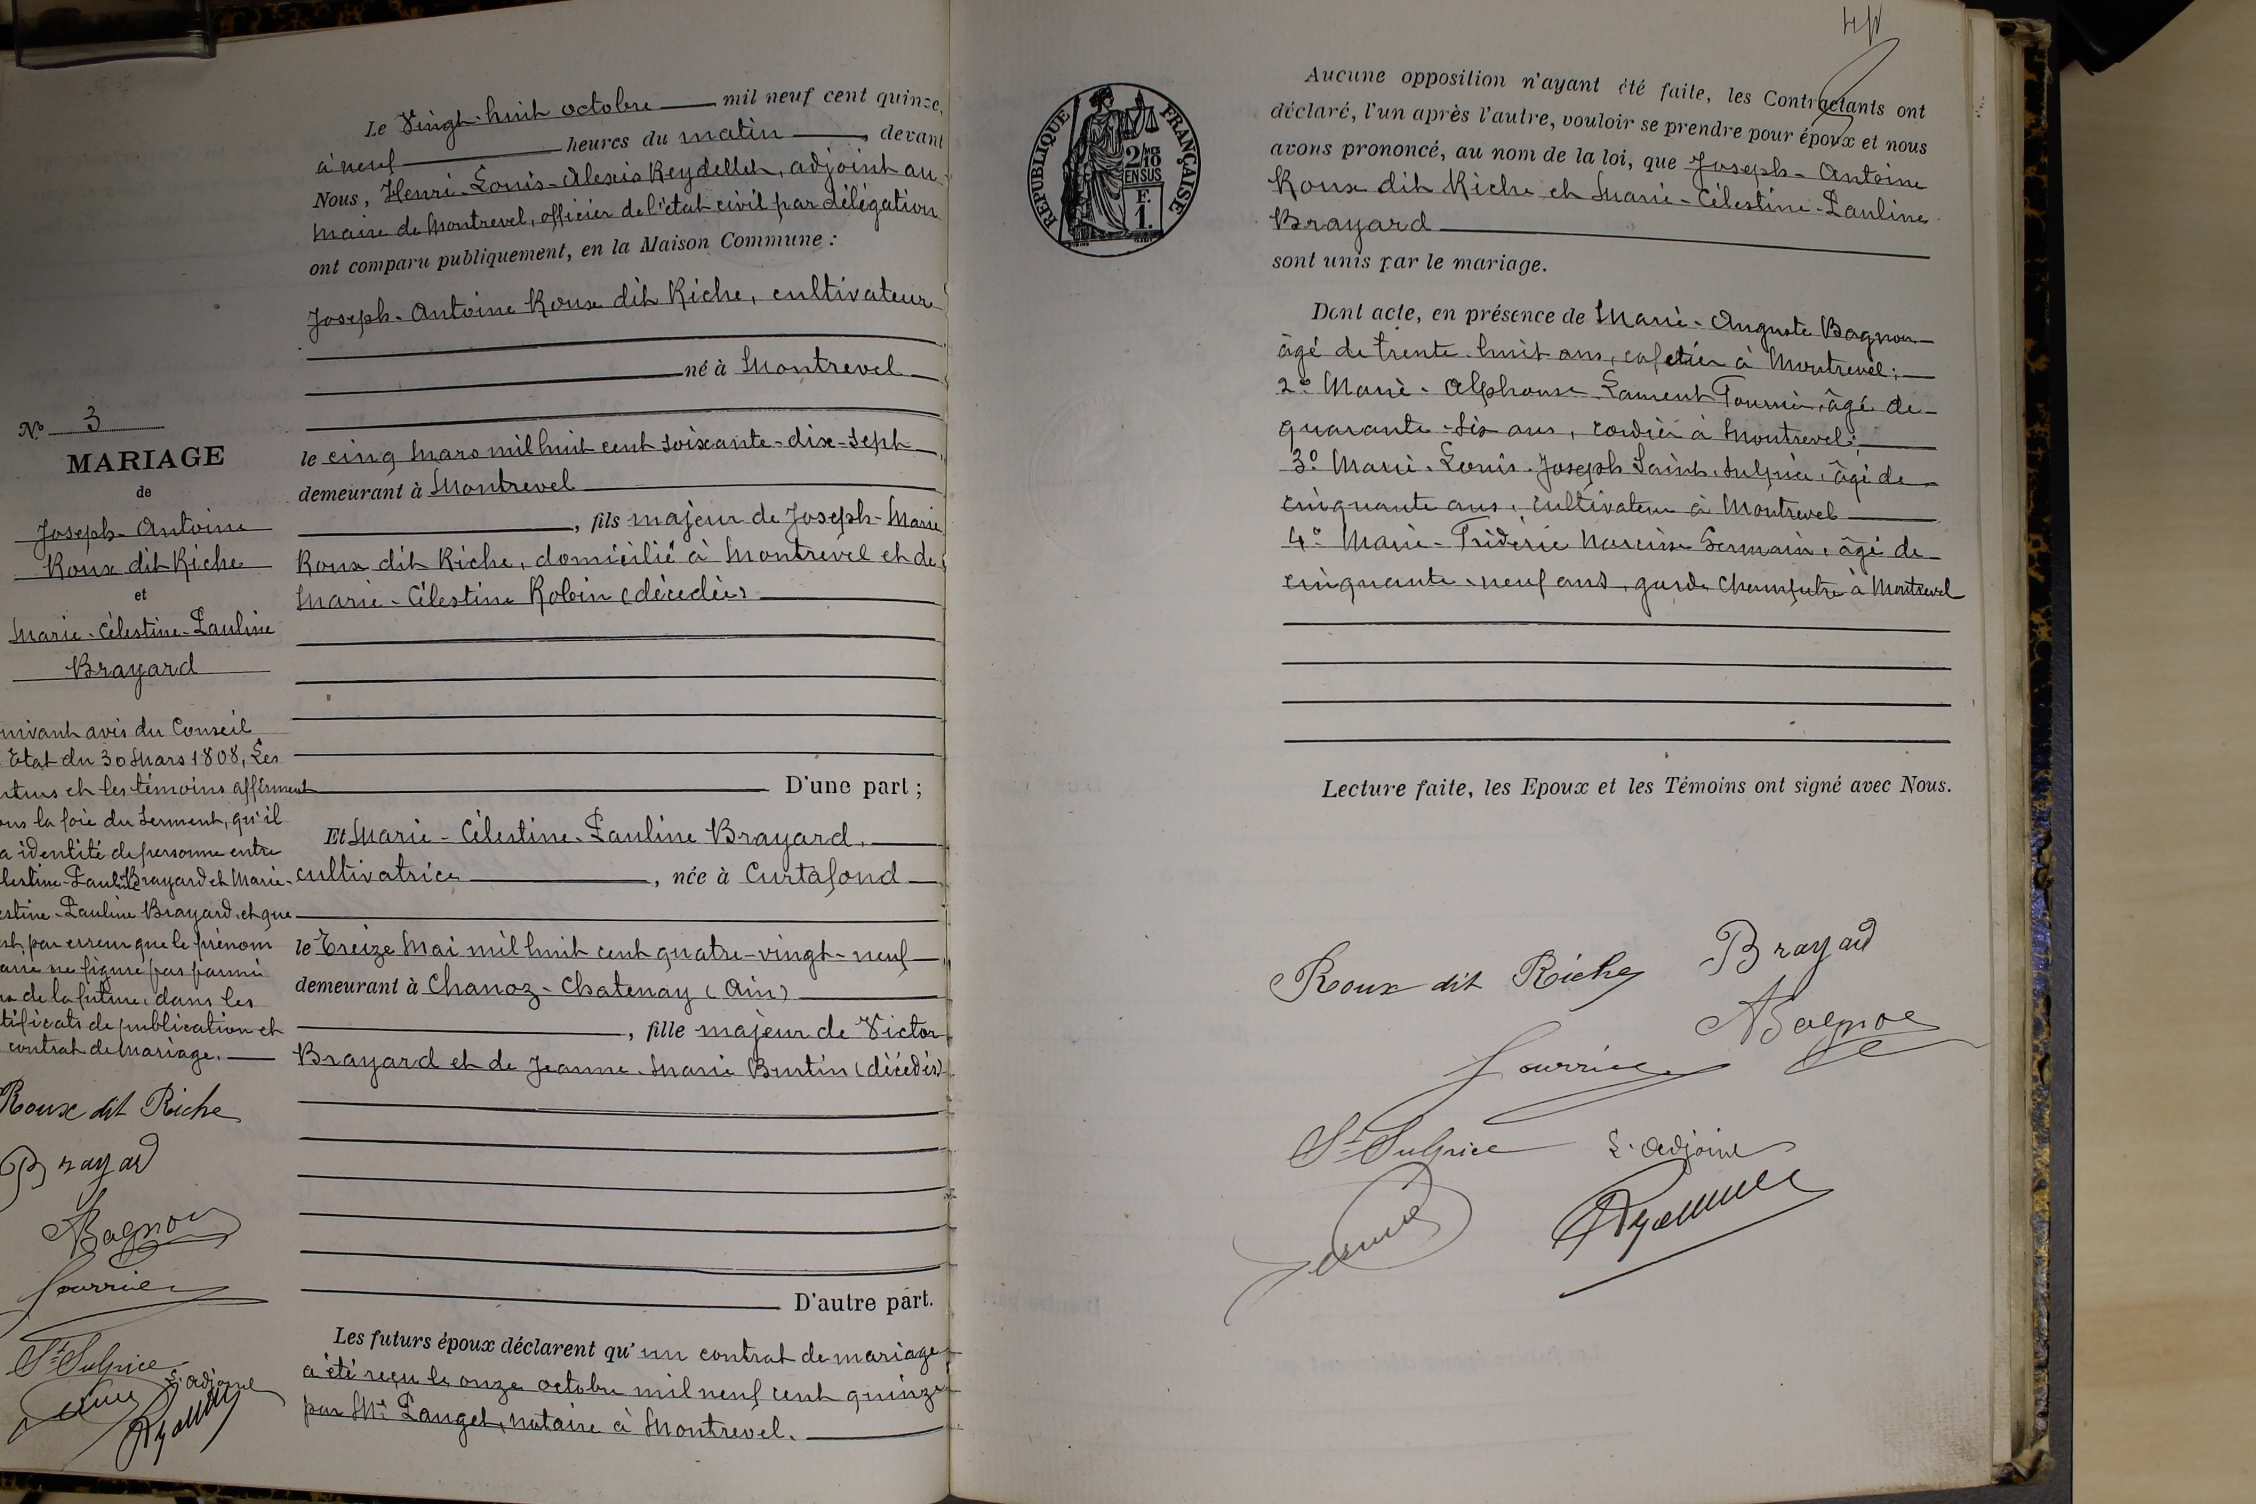 Le Vingt-huit octobre mil neuf cent quinze,
à neuf heures du matin, devant
Nous, Henri-Louis-Alexis Reydellet, adjoint au
Maire de Montrevel, officier de l'état civil par délégation
ont comparu publiquement, en la Maison Commune :
Joseph-Antoine Roux dit Riche, cultivateur
né à Montrevel
le cinq Mars mil huit cent soixante-dix-sept,
demeurant à Montrevel
, fils majeur de Joseph-Marie
Roux dit Riche, domicilié à Montrevel et de
Marie-Célestine Robin (décédée)
D'une part ;
Et Marie-Célestine-Pauline Brayard,
cultivatrice, née à Curtafond
le Treize Mai mil huit cent quatre-vingt-neuf,
demeurant à Chanoz-Chatenay (Ain)
, fille majeur de Victor
Brayard et de Jeanne-Marie Burtin (décédés)
D'autre part.
Les futurs époux déclarent qu'un contrat de mariage
a été reçu le onze octobre mil neuf cent quinze
par Me Panget, notaire à Montrevel.
No 3
MARIAGE
de
Joseph-Antoine
Roux dit Riche
et
Marie-Célestine-Pauline
Brayard
uivant avis du Conseil
Etat du 30 Mars 1808, Les
uturs et les témoins affirment
ous la foie du Serment, qu'il
a identité de personne entre
lestine-Pauline Brayard et Marie-
estine-Pauline Brayard, et que
est par erreur que le prénom
arie ne figure pas parmi
de la future, dans les
tificats de publication et
contrat de Mariage.
Roux dit Riche
Brayard
ABagnon
Fourrier
St Sulpice
L'adjoint
44
RÉPUBLIQUE FRANÇAISE
2/10 MES
EN SUS
F.
1.
Aucune opposition n'ayant été faite, les Contractants ont
déclaré, l'un après l'autre, vouloir se prendre pour époux et nous
avons prononcé, au nom de la loi, que Joseph-Antoine
Roux dit Riche et Marie-Célestine-Pauline
Brayard
sont unis par le mariage.
Dont acte, en présence de Marie-Auguste Bagnon
âgé de trente-huit ans, cafetier à Montrevel ;
2° Marie-Alphonse-Laurent Fourrier, âgé de
quarante-six ans, cordier à Montrevel ;
3° Marie-Louis-Joseph Saint-Sulpice, âgé de
cinquante ans, cultivateur à Montrevel
4° Marie-Fridéric Narcisse Germain, âgé de
cinquante-neuf ans, garde champêtre à Montrevel
Lecture faite, les Epoux et les Témoins ont signé avec Nous.
Roux dit Riche
Brayard
ABagnon
Fourrier
St Sulpice
L'adjoint